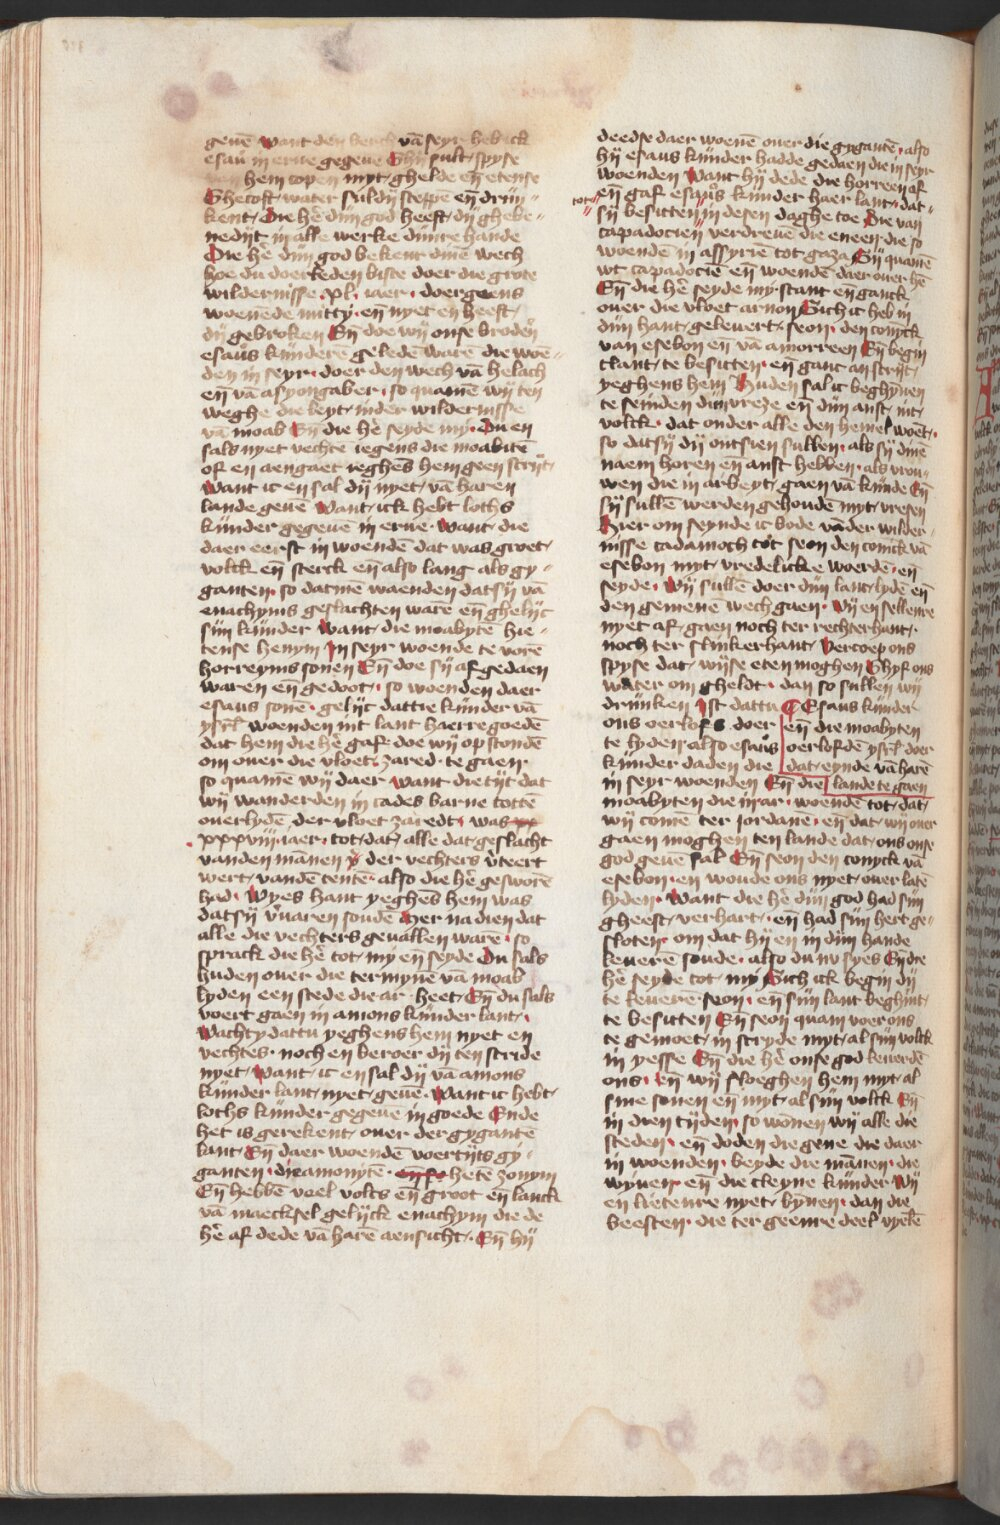 geuē want den berch vā seyr heb ick
esau in erue gegeuē Ghij sult spyse
van hem copen myt ghelde eñ etense
Ghecoft water suldij sceppē eñ drin-
kent Die hē dijn god heeft dij ghebe-
nedijt in alle werkē dinre hande
Die hē dijn god bekent dinē wech
hoe du doerleden biste doer die grote
wildernisse .xl. iaer . doergaens
woenēde mitty . en nyet en heeft
dij gebroken Eñ doe wij onse brodeṙ
esaus kijnderē geledē warē die woē-
den in seyr . doer den wech vā helach
eñ vā asyongaber . so quamē wij ten
weghe die leyt inder wildernisse
vā moab Eñ die hē seyde my . Du en
sals nyet vechtē iegens die moabitē
of en aengaet ieghēs hem geen strijt
want ic en sal dij nyet vā haren
lande geuē Want ick hebt loths
kijnder gegeuē in erue . Want die
daer eerst in woendē dat was groet
volck eñ sterck eñ also lang als gy-
ganten . so datmē waenden datsij vā
enachyms geslachten warē eñ ghelijc
sijn kijnder Want die moabytē hie-
tense henym In seyr woende te vorē
horreyms sonen Eñ doe sij afgedaen
waren eñ gedoot . so woenden daer
esaus sonē . gelijc dattie kijnder vā
ysrl woenden int lant haerre goedē
dat hem die hē gaf doe wij op stondē
om ouer die vloet zared te gaen
so quamē wij daer Want die tijt dat
wij wanderden in cades barne totte
ouerlydē der vloet zaredt . was
xxxviij. iaer . tot dat alle dat geslacht
vanden mānen der vechters v̇teert
wert vandē tentē . also die hē gesworē
had . Wyes hant yeghēs hem was
datsij v̇uaren soudē Her na dien dat
alle die vechters geuallen warē . so
sprack die hē tot my eñ seyde Du sals
huden ouer die termynē vā moab
lyden een stede die ar . heet . Eñ du sals
voert gaen in amons kijnder lant .
Wacht dy dattu yeghens hem nyet en
vechtes . noch en beroer dij ten stride
nyet . Want ic en sal dij vā amons
kijnder lant nyet geuē . Want ic hebt
loths kijnder gegeuē in goede Ende
het is gerekent ouer der gygantē
lant . Eñ daer woendē voertijts gy-
ganten . die amonytē . hetē zonym
Eñ hebbē voel volcs eñ groot eñ lanck
vā maecksel gelijck enachym die de
hē af dede vā harē aensicht . Eñ hij
deedse daer woenē ouer die gygantē . also
hij esaus kijnder hadde gedaen die in seyr
woenden Want hij dede die horreen af
eñ gaf esaus kijnder haer lant dat
tot
sij besitten in desen daghe toe Die van
capadocien verdreuē die eueen die so
woendē in assyriē tot gaza Sij quamē
wt capadociē eñ woendē daer ouer hē
Eñ die hē seyde my . stant eñ ganck
ouer die vloet arnon Sich ic heb in
dijn hant geleuert seon . den conyck
van esebon eñ vā amorreen Eñ begin
tlant te besitten . eñ ganc an strijt
yeghens hem Huden sal ic beghynen
te seinden dijn vreze eñ dijn anst int
volck . dat onder alle den hemel woēt .
so datsij dij ontsien sullen . als sij dinē
naem horen eñ anst hebben . als vrou-
wen die in arbeyt gaen vā kinde Eñ
sij sullē werden gehoudē myt vresen
Hier om seynde ic bode vāder wilder-
nisse cadamoch tot seon den conick vā
esebon myt vredelicke woerdē . en
seyde . Wij sullē doer dijn lant lydē eñ
den gemenē wech gaen . Wij en sellenre
nyet af gaen noch ter rechterhant
noch ter slinkerhant . Vercoep ons
spyse dat wijse eten moghen Ghyf ons
water om gheldt . dan so sullen wij
drijnken Ist dattu
ons oerlofs doer
te lyden . also esaus
kijnder daden die
in seyr woenden Eñ die
Esaus kijnder
eñ die moabyten
oerlofdē ysrl doer
dat eynde vā harē
lande te gaen
moabyten die in ar . woendē tot dat
wij comē ter jordanē . eñ dat wij ouer
gaen moghen ten lande dat ons onse
god geuē sal Eñ seon den conyck vā
esebon . en woude ons nyet ouer latē
lyden . Want die hē dijn god had sijn
gheest verhart . eñ had sijn hert ge-
sloten . om dat hij en in dijn hande
leuerē soude . also du nv syes Eñ die
hē seyde tot my Sich ick begin dij
te leuerē seon . eñ sijn lant beghint
te besitten Eñ seon quam voer ons
te gemoet in stryde myt al sijn volck
in yesse Eñ die hē onse god leuerdē
ons . eñ wij sloeghen hem myt al
sine sonen eñ myt al sijn volck Eñ
in dien tijden . so wōnen wij alle die
steden . eñ doden die gene die daer
in woenden . beyde die mānen . die
wyuen . eñ die cleyne kijnder Wij
en lietenre nyet bynen . dan die
beesten . die ter geenre deel vyelē